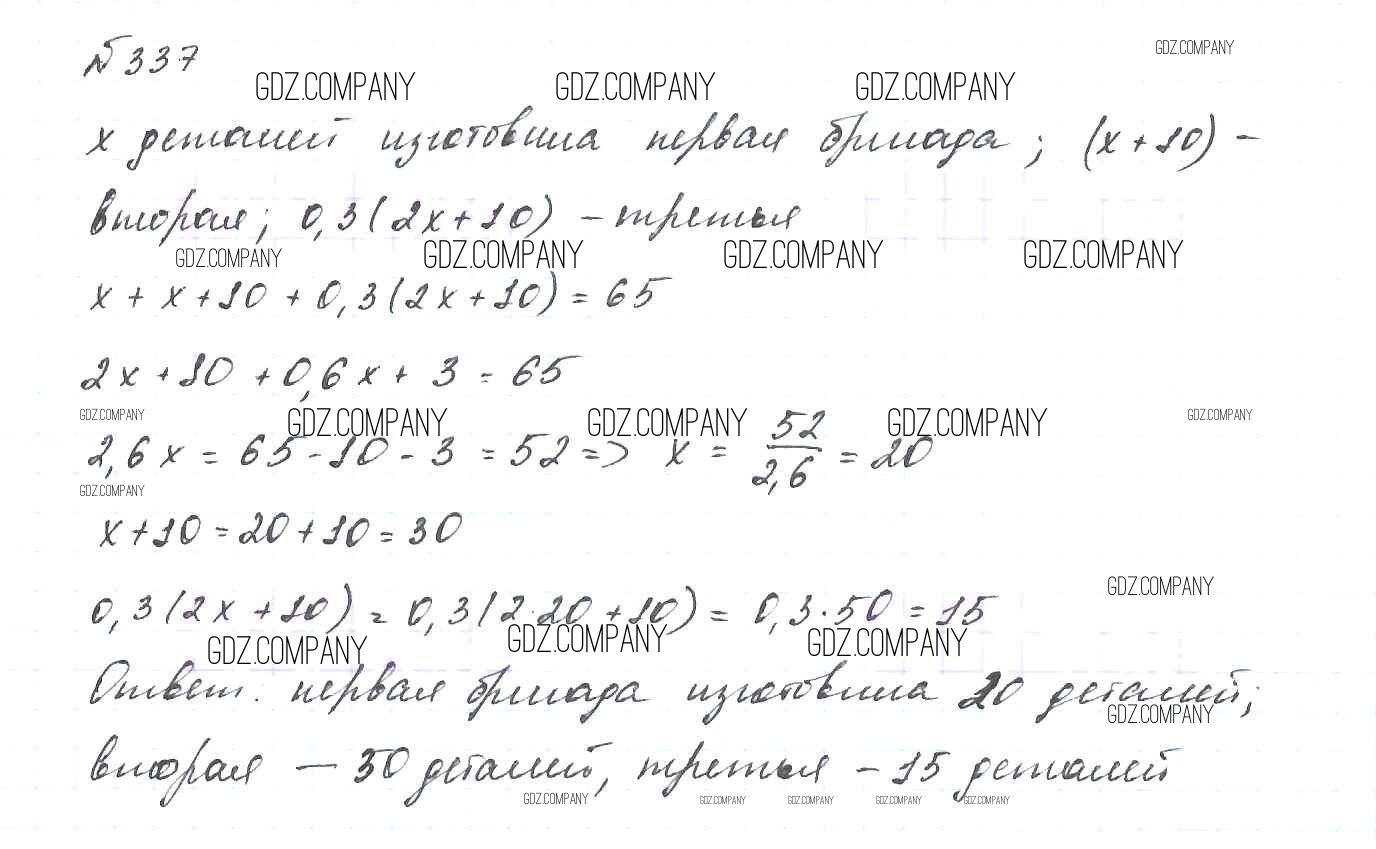 №337
GDZ.COMPANY
GDZ.COMPANY GDZ.COMPANY GDZ.COMPANY
x деталей изготовила первая бригада; (x+10) –
вторая; 0,3(2x+10) – третья
GDZ.COMPANY GDZ.COMPANY GDZ.COMPANY GDZ.COMPANY
x + x + 10 + 0,3(2x+10) = 65
2x + 10 + 0,6x + 3 = 65
GDZ.COMPANY GDZ.COMPANY GDZ.COMPANY GDZ.COMPANY GDZ.COMPANY
2,6x = 65 - 10 - 3 = 52 => x = 52/2,6 = 20
GDZ.COMPANY
x + 10 = 20 + 10 = 30
GDZ.COMPANY
0,3(2x + 10) = 0,3(2·20 + 10) = 0,3·50 = 15
GDZ.COMPANY GDZ.COMPANY GDZ.COMPANY
Ответ: первая бригада изготовила 20 деталей;
GDZ.COMPANY
вторая – 30 деталей, третья – 15 деталей
GDZ.COMPANY GDZ.COMPANY GDZ.COMPANY GDZ.COMPANY GDZ.COMPANY